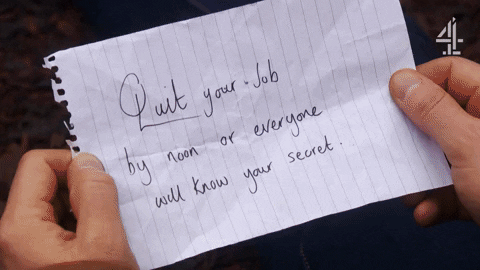 Quit your Job
by noon or everyone
will know your secret.
4